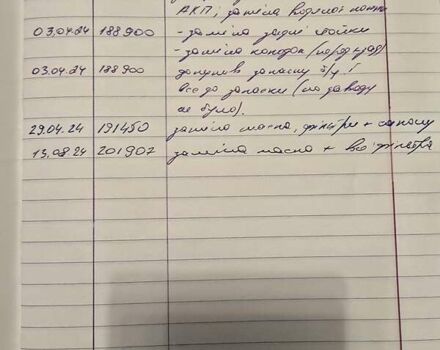 АКП; заміна водяної помпи
03.04.24 188900 - заміна задні стойки
- заміна колодок (перед, зад)
03.04.24 188900 докупив запаску б/у і
все до запаски (по заводу
не було).
29.04.24 191450 заміна масла, фільтри +
13.08.24 201902 заміна масла + всі фільтра